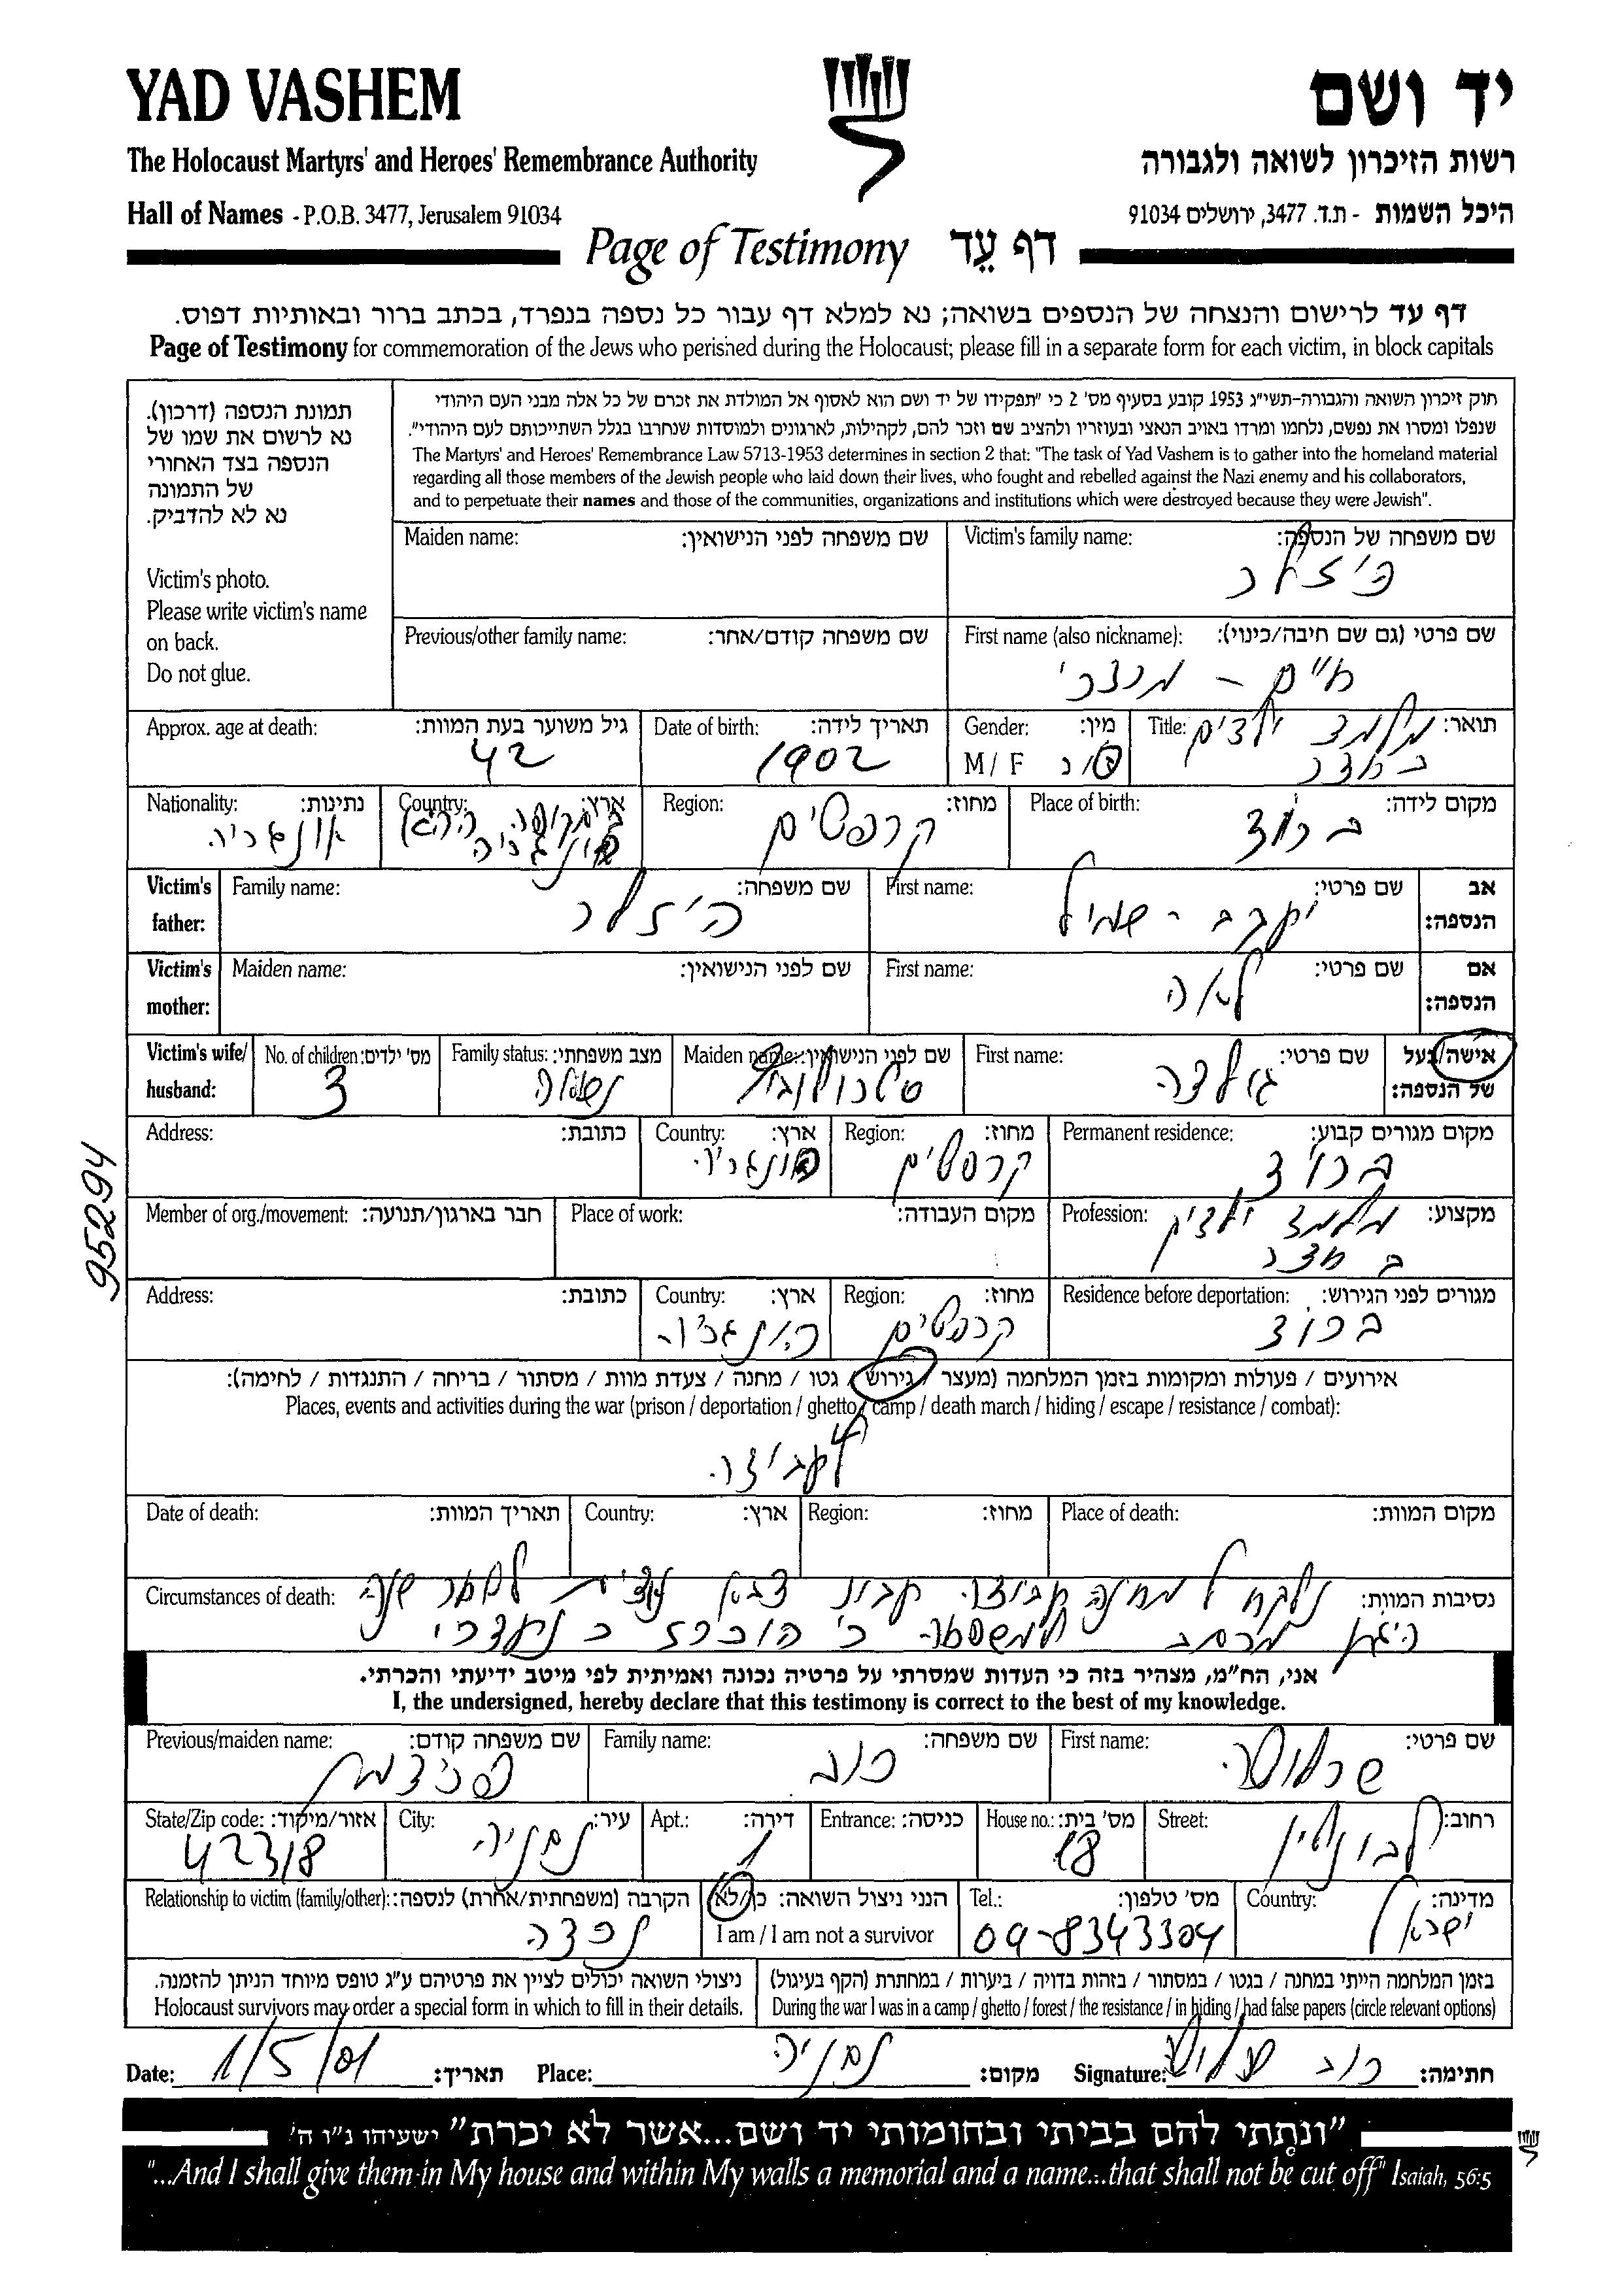 YAD VASHEM
יד ושם
The Holocaust Martyrs' and Heroes' Remembrance Authority
רשות הזיכרון לשואה ולגבורה
Hall of Names - P.O.B. 3477, Jerusalem 91034
היכל השמות - ת.ד. 3477, ירושלים 91034
Page of Testimony דף עֵד
דף עד לרישום והנצחה של הנספים בשואה; נא למלא דף עבור כל נספה בנפרד, בכתב ברור ובאותיות דפוס.
Page of Testimony for commemoration of the Jews who perished during the Holocaust; please fill in a separate form for each victim, in block capitals
תמונת הנספה (דרכון).
נא לרשום את שמו של
הנספה בצד האחורי
של התמונה
נא לא להדביק.
Victim's photo.
Please write victim's name
on back.
Do not glue.
חוק זיכרון השואה והגבורה-תשי״ג 1953 קובע בסעיף מס' 2 כי "תפקידו של יד ושם הוא לאסוף אל המולדת את זכרם של כל אלה מבני העם היהודי
שנפלו ומסרו את נפשם, נלחמו ומרדו באויב הנאצי ובעוזריו ולהציב שם וזכר להם, לקהילות, לארגונים ולמוסדות שנחרבו בגלל השתייכותם לעם היהודי".
The Martyrs' and Heroes' Remembrance Law 5713-1953 determines in section 2 that: "The task of Yad Vashem is to gather into the homeland material
regarding all those members of the Jewish people who laid down their lives, who fought and rebelled against the Nazi enemy and his collaborators,
and to perpetuate their names and those of the communities, organizations and institutions which were destroyed because they were Jewish".
Victim's family name: שם משפחה של הנספה:
Maiden name: שם משפחה לפני הנישואין:
First name (also nickname): שם פרטי (גם שם חיבה/כינוי):
חיים -
Previous/other family name: שם משפחה קודם/אחר:
Title: תואר: מלמד ילדים
בחדר
Gender: מין:
M / F ז/נ
Date of birth: תאריך לידה:
1902
Approx. age at death: גיל משוער בעת המוות:
42
Place of birth: מקום לידה:
Region: מחוז:
קרפטים
Country: ארץ:
Nationality: נתינות:
Victim's father: אב הנספה:
First name: שם פרטי:
יעקב - שמיל
Family name: שם משפחה:
Victim's mother: אם הנספה:
First name: שם פרטי:
לאה
Maiden name: שם לפני הנישואין:
Victim's wife/ husband: אישה/בעל של הנספה:
First name: שם פרטי:
גולדה
Maiden name: שם לפני הנישואין:
Family status: מצב משפחתי:
נשוי
No. of children: מס' ילדים:
3
Permanent residence: מקום מגורים קבוע:
Region: מחוז:
קרפטים
Country: ארץ:
Address: כתובת:
Profession: מקצוע: מלמד ילדים
בחדר
Place of work: מקום העבודה:
Member of org./movement: חבר בארגון/תנועה:
Residence before deportation: מגורים לפני הגירוש:
Region: מחוז:
קרפטים
Country: ארץ:
Address: כתובת:
אירועים / פעולות ומקומות בזמן המלחמה (מעצר / גירוש / גטו / מחנה / צעדת מוות / מסתור / בריחה / התנגדות / לחימה):
Places, events and activities during the war (prison / deportation / ghetto / camp / death march / hiding / escape / resistance / combat):
Place of death: מקום המוות:
Region: מחוז:
Country: ארץ:
Date of death: תאריך המוות:
Circumstances of death: נסיבות המוות: נלקח למחנה עבודה.
כי הוכרז כנעדר
אני, הח"מ, מצהיר בזה כי העדות שמסרתי על פרטיה נכונה ואמיתית לפי מיטב ידיעתי והכרתי.
I, the undersigned, hereby declare that this testimony is correct to the best of my knowledge.
First name: שם פרטי:
Family name: שם משפחה:
כוב
Previous/maiden name: שם משפחה קודם:
פרידמן
Street: רחוב:
לבונטין
House no.: מס' בית:
18
Entrance: כניסה:
Apt.: דירה:
1
City: עיר:
נתניה
State/Zip code: אזור/מיקוד:
42318
Country: מדינה:
ישראל
Tel.: מס' טלפון:
09-8343304
הנני ניצול השואה: כן/לא
I am / I am not a survivor
Relationship to victim (family/other): הקרבה (משפחתית/אחרת) לנספה:
נכדה
בזמן המלחמה הייתי במחנה / בגטו / במסתור / בזהות בדויה / ביערות / במחתרת (הקף בעיגול)
During the war I was in a camp / ghetto / forest / the resistance / in hiding / had false papers (circle relevant options)
ניצולי השואה יכולים לציין את פרטיהם ע"ג טופס מיוחד הניתן להזמנה.
Holocaust survivors may order a special form in which to fill in their details.
Date: 1/5/01 תאריך: Place: נתניה מקום: Signature: חתימה:
"ונתתי להם בביתי ובחומותי יד ושם...אשר לא יכרת" ישעיהו נ"ו ה'
"...And I shall give them in My house and within My walls a memorial and a name...that shall not be cut off" Isaiah, 56:5
95294